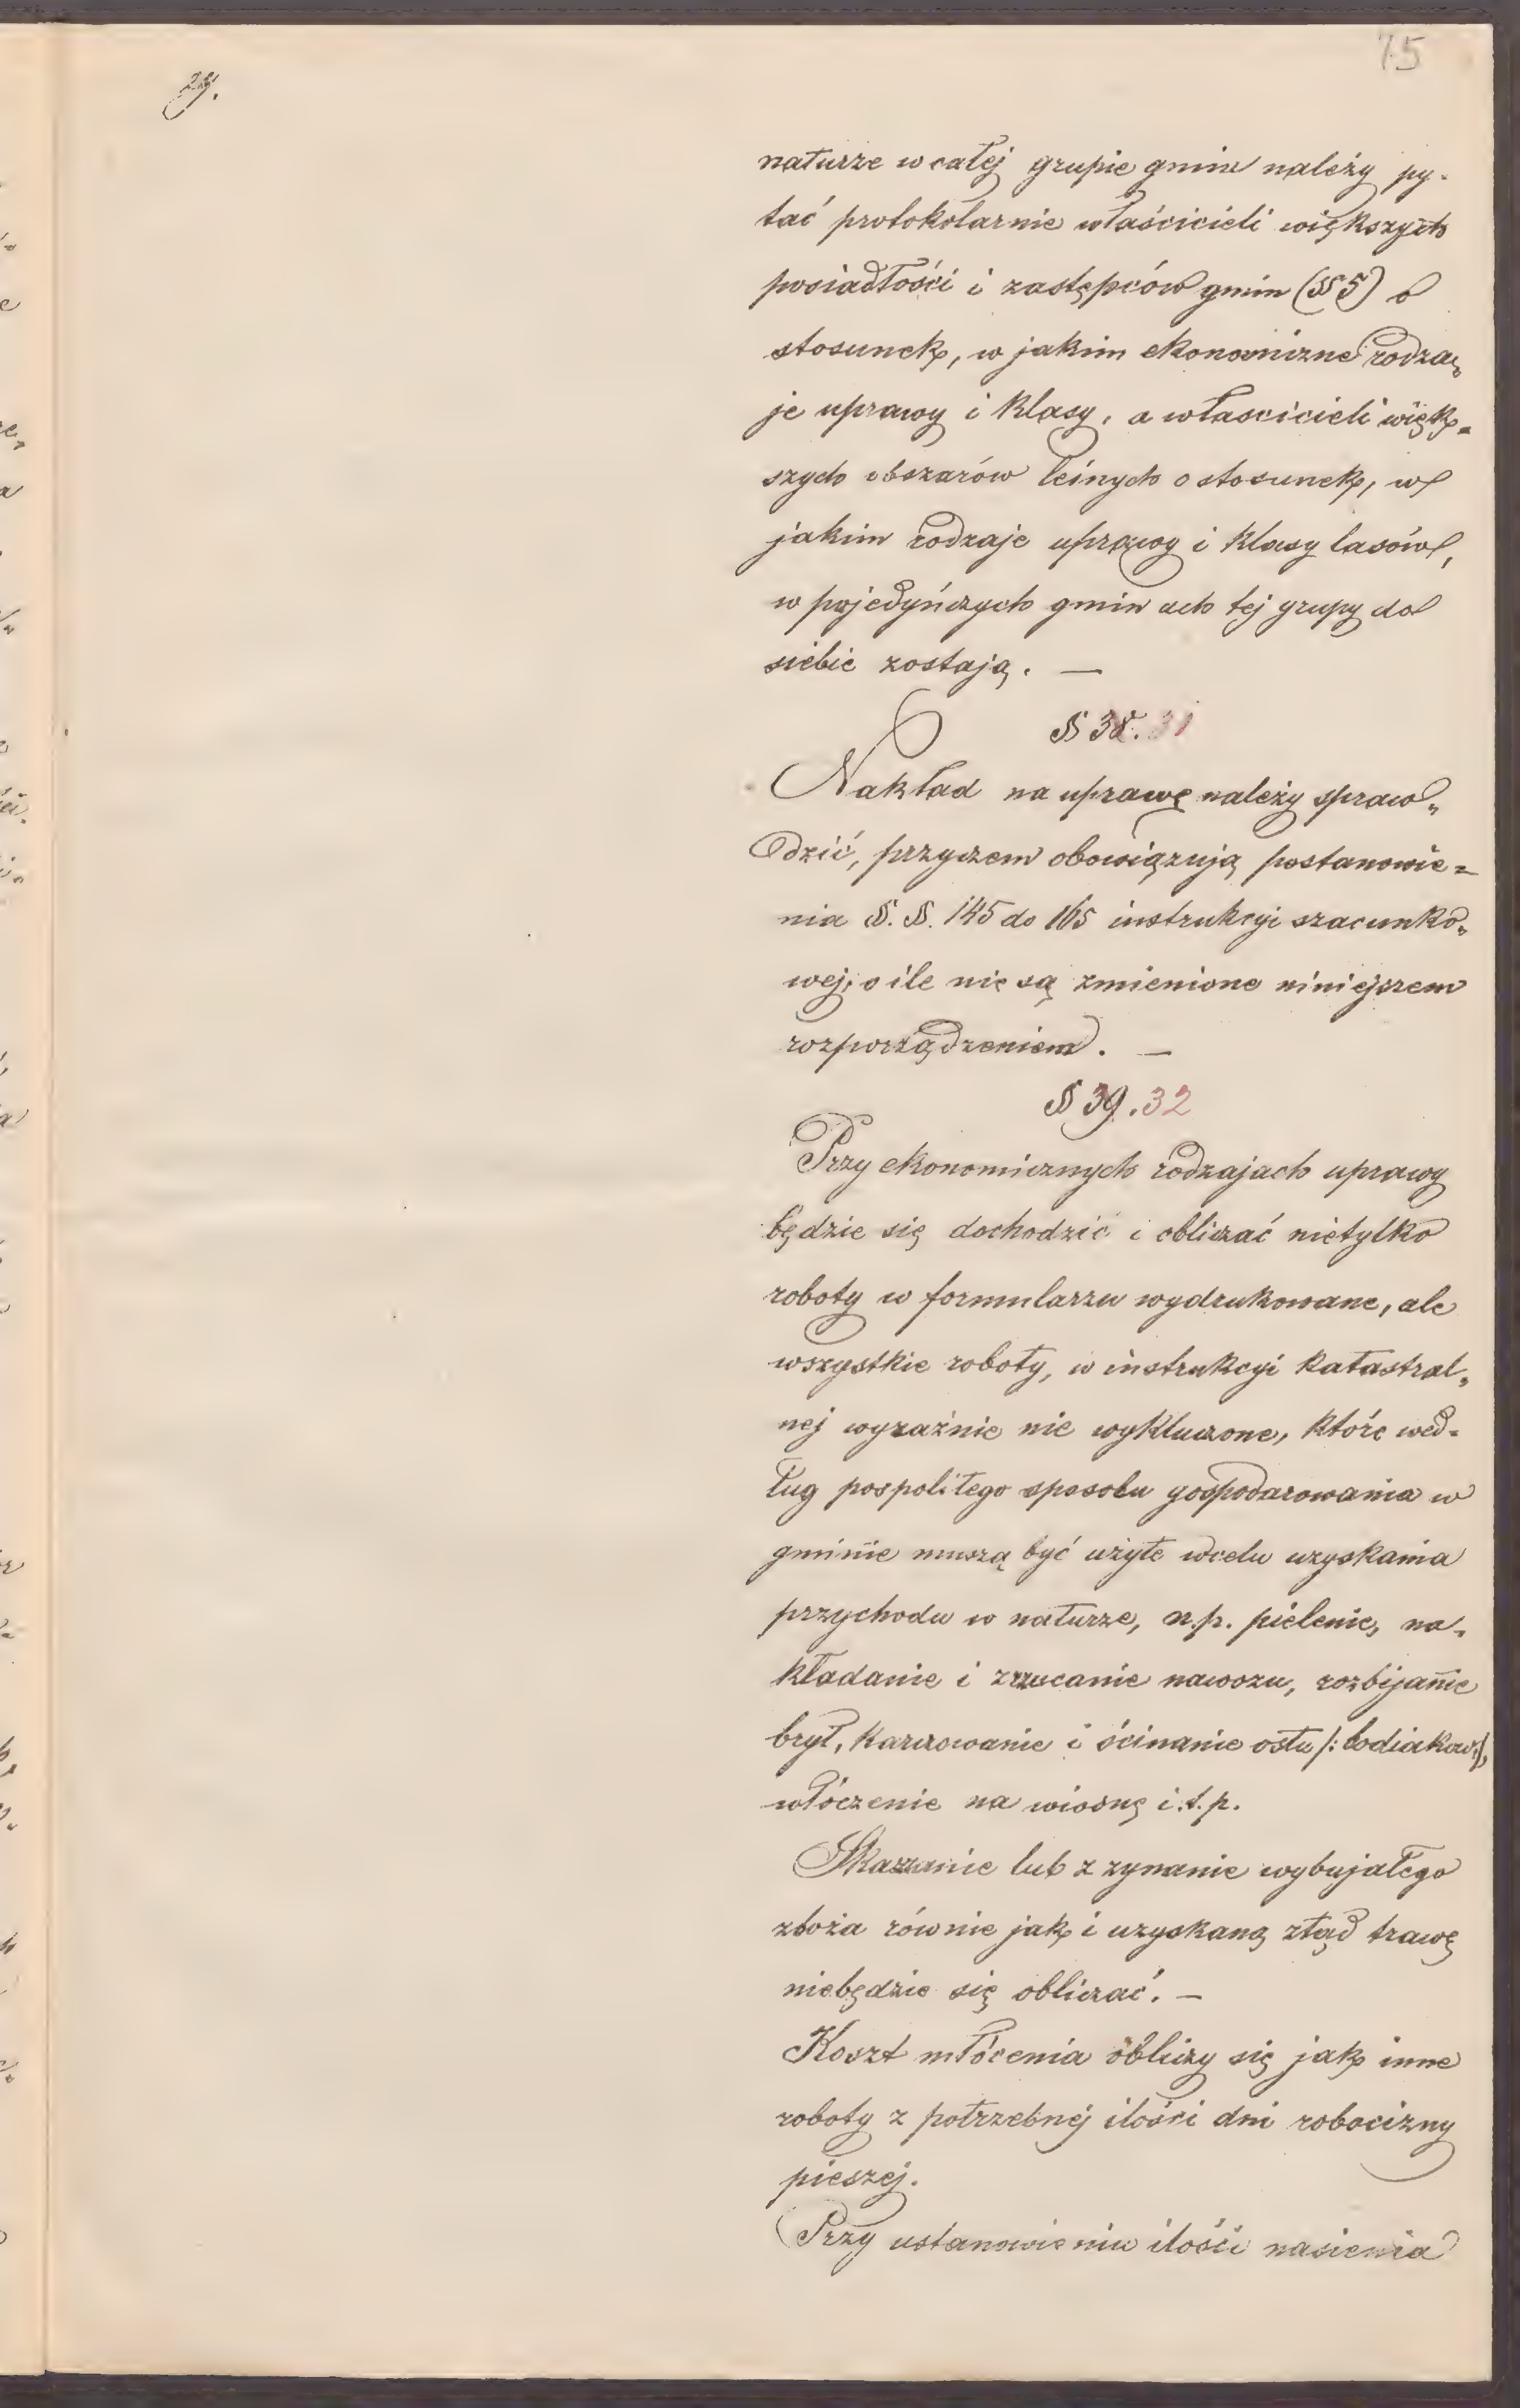 75
29.
naturze w całej grupie gmin należy py-
tać protokolarnie właścicieli większych
posiadłości i zastępców gmin (§ 5) o
stosunek, w jakim ekonomiczne rodza„
je uprawy i klasy, a właścicieli więk-
szych obszarów leśnych o stosunek, w
jakim rodzaje uprawy i klasy lasów,
w pojedyńczych gminach tej grupy do
siebie zostają. —
§ 38. 31
Nakład na uprawę należy spraw„
dzić, przyczem obowiązują postanowie=
nia §. §. 145 do 165 instrukcyi szacunko„
wej, o ile nie są zmienione niniejszem
rozporządzeniem. —
§ 39. 32
Przy ekonomicznych rodzajach uprawy
będzie się dochodzić i obliczać nietylko
roboty w formularzu wydrukowane, ale
wszystkie roboty, w instrukcyi katastral„
nej wyraźnie nie wykluczone, które wed-
ług pospolitego sposobu gospodarowania w
gminie muszą być użyte wcelu uzyskania
przychodu w naturze, n.p. pielenie, na-
kładanie i zrzucanie nawozu, rozbijanie
brył, karczowanie i ścinanie ostu /: bodiaków :/,
włóczenie na wiosnę i.t.p.
Skaszanie lub zzynanie wybujałego
zboża równie jak i uzyskaną ztąd trawę
niebędzie się obliczać. —
Koszt młócenia obliczy się jak inne
roboty z potrzebnej ilości dni robocizny
pieszej.
Przy ustanowieniu ilości nasienia